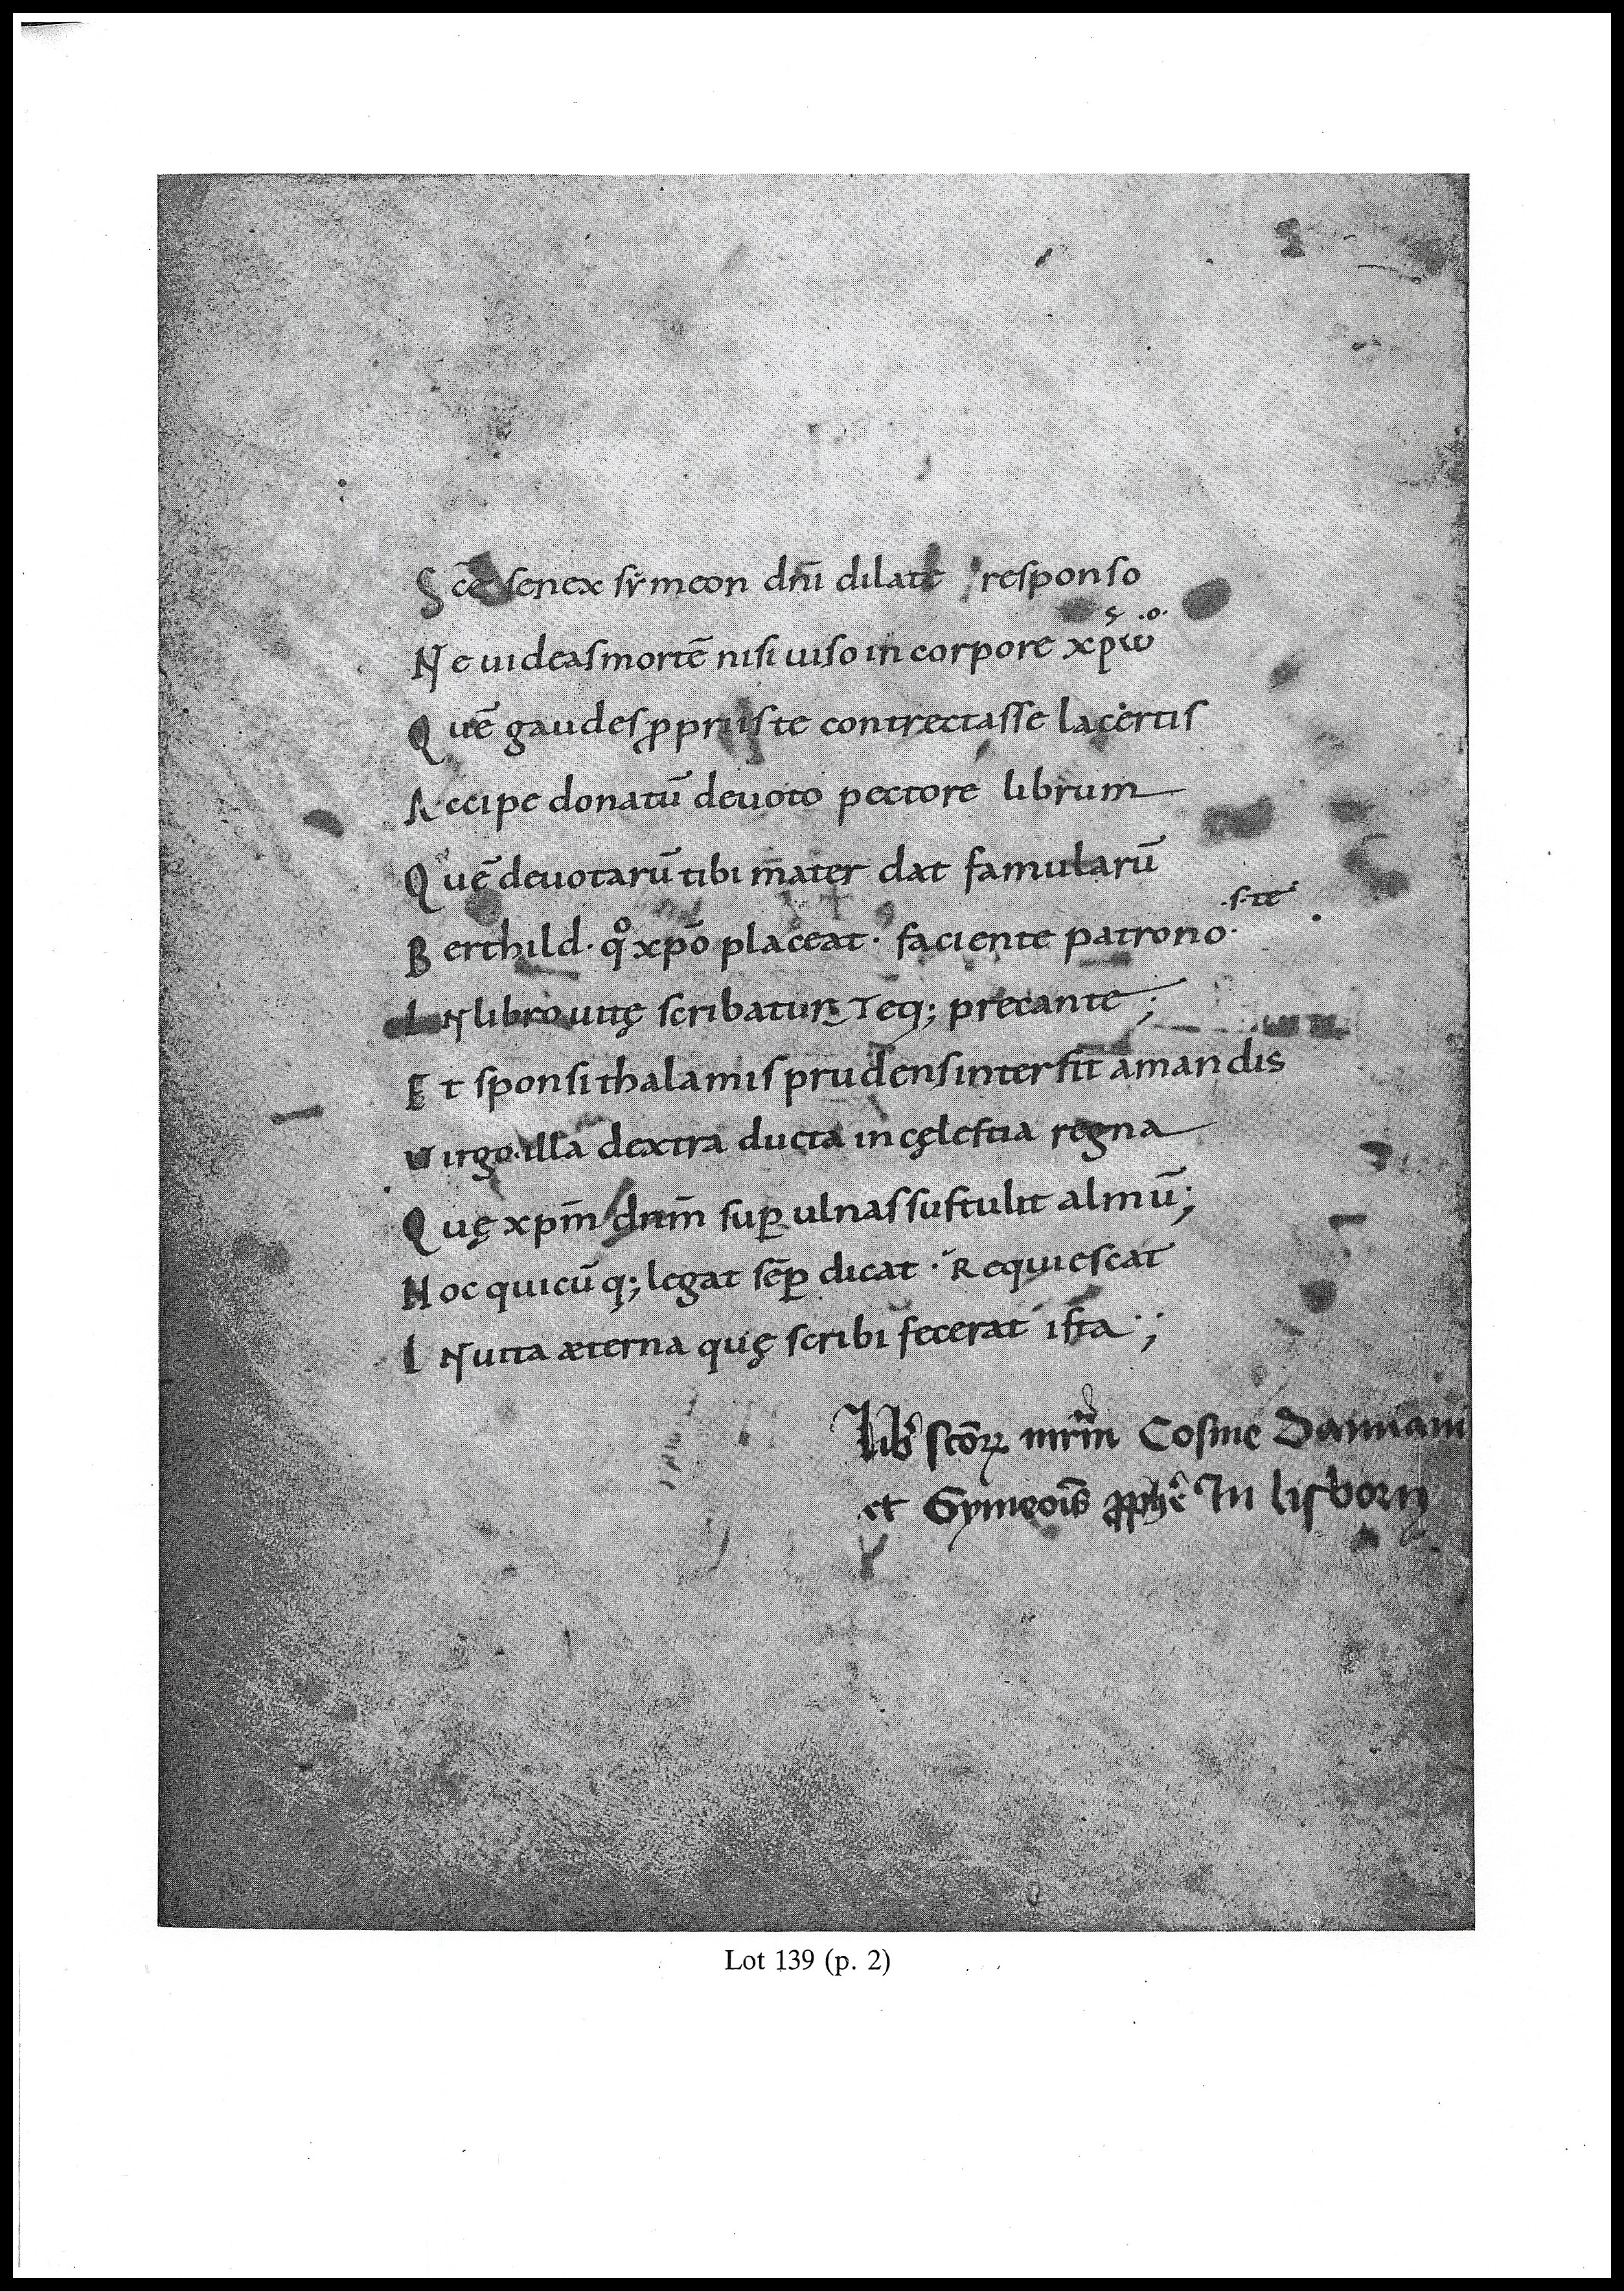 Scē senex sẏmeon dn̄i dilate responso
ς .o.
Ne uideas mortē nisi uiso in corpore xp̄ω
Quē gaudes ꝓpriis te contrectasse lacertis
Accipe donatū deuoto pectore librum
Quē deuotarū tibi m̄ater dat famularū
.s. te
Berthild· qͦ xp̄o placeat· faciente patrono·
IN libro uitę scribatur, Teq; precante;
Et sponsi thalamis prudens intersit amandis
Uirgo illa dextra ducta in cęlestia regna
Quę xp̄m dn̄m suꝑ ulnas sustulit almū;
Hoc quicūq; legat sēꝑ dicat · Requiescat
IN uita æterna quę scribi fecerat ista·;
Lib̄ sc̄oꝝ mr̄m Cosme Damiani
et Symeoīs ꝓphē In lisborn
Lot 139 (p. 2)